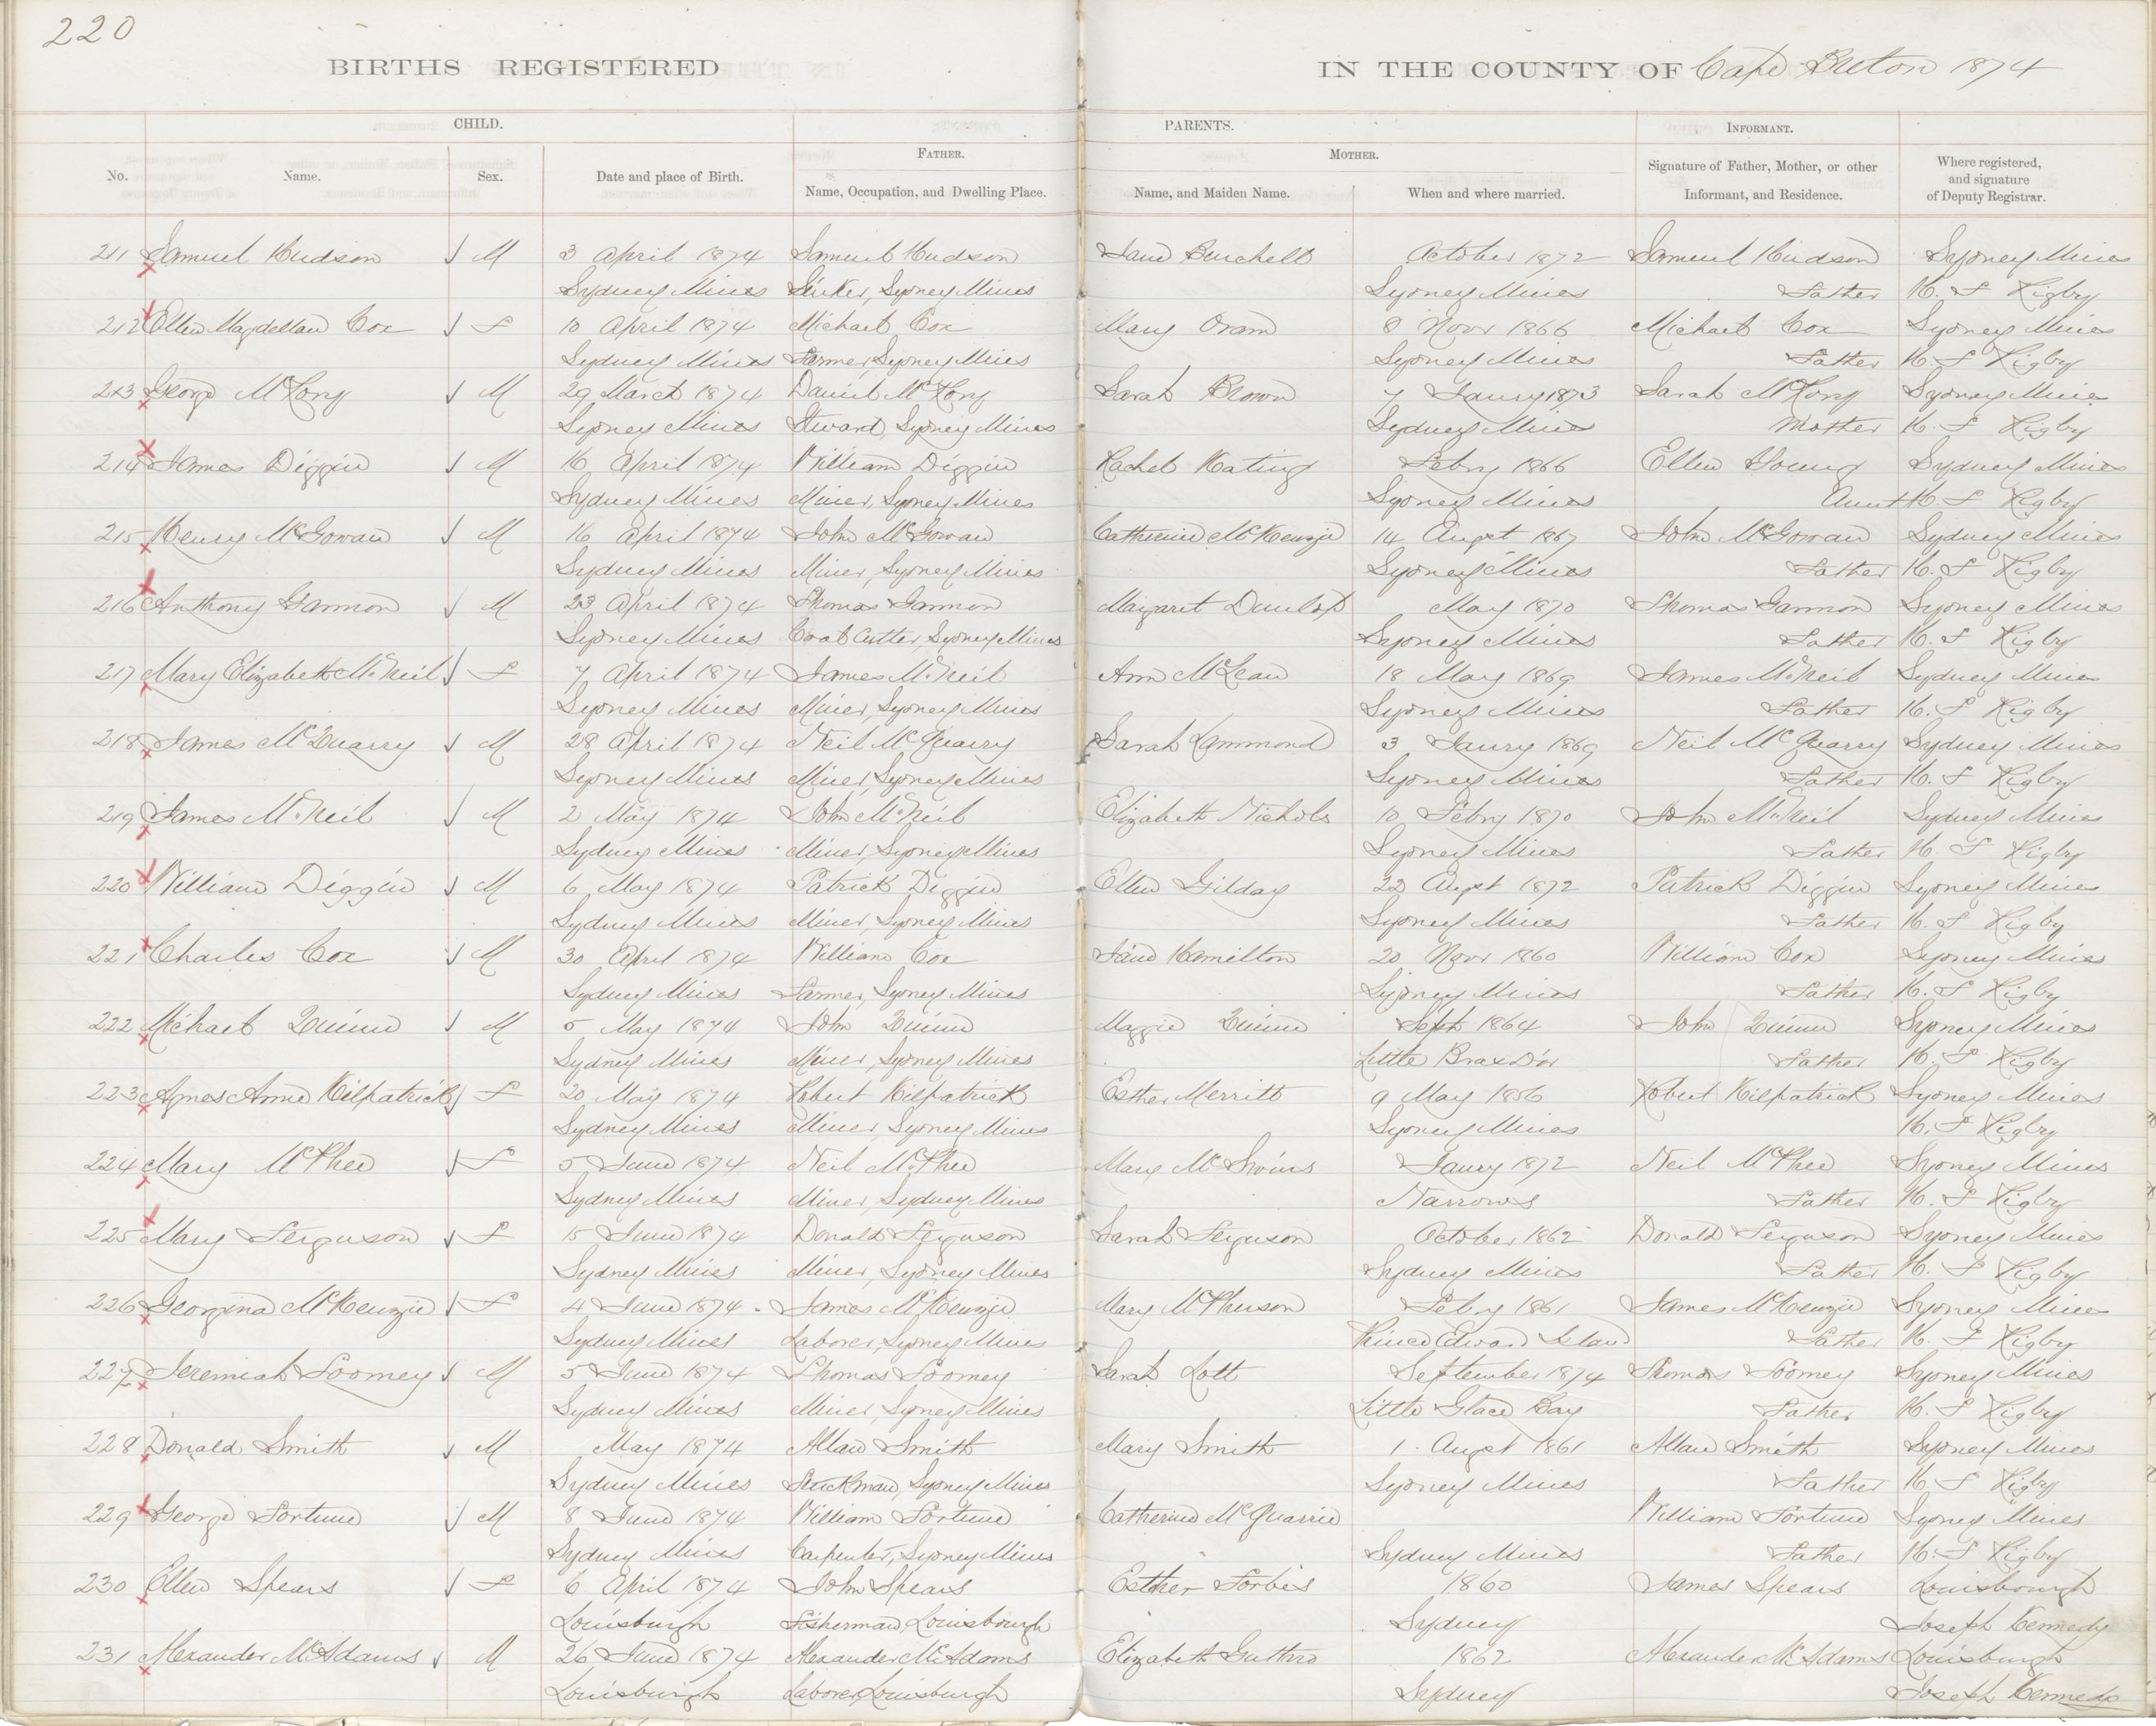 220
BIRTHS REGISTERED IN THE COUNTY OF Cape Breton 1874
CHILD. PARENTS. INFORMANT.
FATHER. MOTHER.
No. Name. Sex. Date and place of Birth. Name, Occupation, and Dwelling Place. Name, and Maiden Name. When and where married. Signature of Father, Mother, or other Informant, and Residence. Where registered, and signature of Deputy Registrar.
211 Samuel Hudson M 3 April 1874 Samuel Hudson Jane Burchell October 1872 Samuel Hudson Sydney Mines
Sydney Mines Sinker, Sydney Mines Sydney Mines Father H. F Rigby
212 Ellen Magdellan Cox F 10 April 1874 Michael Cox Mary Oram 8 Novr 1866 Michael Cox Sydney Mines
Sydney Mines Farmer, Sydney Mines Sydney Mines Father H. F Rigby
213 George McKory M 29 March 1874 Daniel McKory Sarah Brown 7 Jaury 1873 Sarah McKory Sydney Mines
Sydney Mines Steward, Sydney Mines Sydney Mines Mother H. F Rigby
214 James Diggin M 16 April 1874 William Diggin Rachel Kating Febry 1866 Ellen Young Sydney Mines
Sydney Mines Miner, Sydney Mines Sydney Mines Aunt H F Rigby
215 Henry McGowan M 16 April 1874 John McGowan Catherine McKenzie 14 Augst 1867 John McGowan Sydney Mines
Sydney Mines Miner, Sydney Mines Sydney Mines Father H. F Rigby
216 Anthony Gannon M 23 April 1874 Thomas Gannon Margaret Dunlop May 1870 Thomas Gannon Sydney Mines
Sydney Mines Coal Cutter, Sydney Mines Sydney Mines Father H. F Rigby
217 Mary Elizabeth McNeil F 7 April 1874 James McNeil Ann McLean 18 May 1869 James McNeil Sydney Mines
Sydney Mines Miner, Sydney Mines Sydney Mines Father H. F Rigby
218 James McQuarry M 28 April 1874 Neil McQuarry Sarah Lammond 3 Jaury 1869 Neil McQuarry Sydney Mines
Sydney Mines Miner, Sydney Mines Sydney Mines Father H. F Rigby
219 James McNeil M 2 May 1874 John McNeil Elizabeth Nichols 10 Febry 1870 John McNeil Sydney Mines
Sydney Mines Miner, Sydney Mines Sydney Mines Father H. F Rigby
220 William Diggin M 6 May 1874 Patrick Diggin Ellen Gilday 22 Augst 1872 Patrick Diggin Sydney Mines
Sydney Mines Miner, Sydney Mines Sydney Mines Father H. F Rigby
221 Charles Cox M 30 April 1874 William Cox Jane Hamilton 20 Novr 1860 William Cox Sydney Mines
Sydney Mines Farmer, Sydney Mines Sydney Mines Father H. F Rigby
222 Michael Quinn M 5 May 1874 John Quinn Maggie Quinn Sept 1864 John Quinn Sydney Mines
Sydney Mines Miner, Sydney Mines Little Bras D'or Father H. F Rigby
223 Agnes Anne Kilpatrick F 20 May 1874 Robert Kilpatrick Esther Merritt 9 May 1856 Robert Kilpatrick Sydney Mines
Sydney Mines Miner, Sydney Mines Sydney Mines H. F Rigby
224 Mary McPhee F 5 June 1874 Neil McPhee Mary McSwins Jaury 1872 Neil McPhee Sydney Mines
Sydney Mines Miner, Sydney Mines Narrows Father H. F Rigby
225 Mary Ferguson F 15 June 1874 Donald Ferguson Sarah Ferguson October 1862 Donald Ferguson Sydney Mines
Sydney Mines Miner, Sydney Mines Sydney Mines Father H. F Rigby
226 Georgina McKenzie F 4 June 1874 James McKenzie Mary McPherson Febry 1861 James McKenzie Sydney Mines
Sydney Mines Laborer, Sydney Mines Prince Edward Island Father H. F Rigby
227 Jeremiah Toomey M 5 June 1874 Thomas Toomey Sarah Lott September 1874 Thomas Toomey Sydney Mines
Sydney Mines Miner, Sydney Mines Little Glace Bay Father H. F Rigby
228 Donald Smith M May 1874 Allan Smith Mary Smith 1 Augst 1861 Allan Smith Sydney Mines
Sydney Mines Sydney Mines Sydney Mines Father H. F Rigby
229 George Fortune M 8 June 1874 William Fortune Catherine McQuarrie William Fortune Sydney Mines
Sydney Mines Carpenter, Sydney Mines Sydney Mines Father H. F Rigby
230 Ellen Spears F 6 April 1874 John Spears Esther Forbes 1860 James Spears Louisbourgh
Louisburgh Fisherman, Louisbourgh Sydney Joseph Kennedy
231 Alexander McAdams M 26 June 1874 Alexander McAdams Elizabeth Guthro 1862 Alexander McAdams Louisburgh
Louisburgh Laborer, Louisburgh Sydney Joseph Kennedy